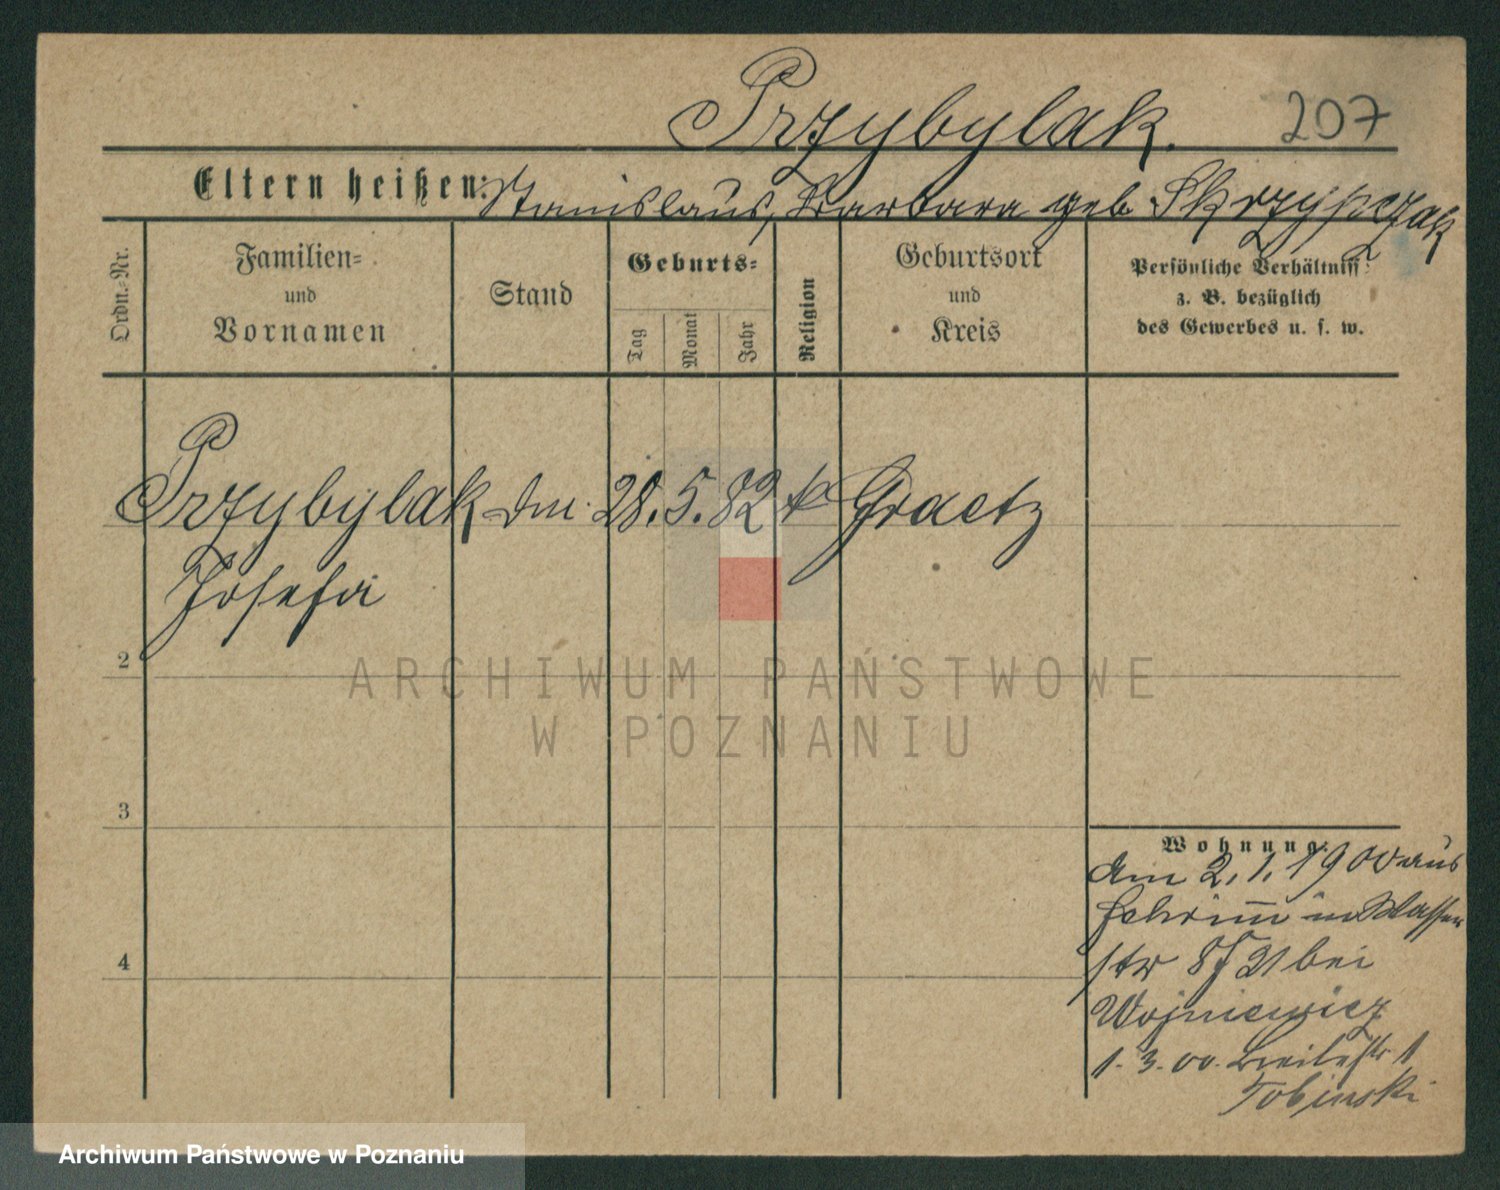 Przybylak. 207
Eltern heißen: Stanislaus, Barbara geb Skrzypczak
Ordn.-Nr.
Familien-
und
Vornamen
Stand
Geburts-
Tag
Monat
Jahr
Religion
Geburtsort
und
Kreis
Persönliche Verhältniss
z. B. bezüglich
des Gewerbes u. s. w.
Przybylak 28. 5. 82 k Graetz
Josefa
2
ARCHIWUM PAŃSTWOWE
W POZNANIU
3
4
Wohnung:
am 2. 1. 1900 aus
Schrimm in
str 21 bei
Wojniewicz
1. 3. 00. Breitestr 1
Tobinski
Archiwum Państwowe w Poznaniu